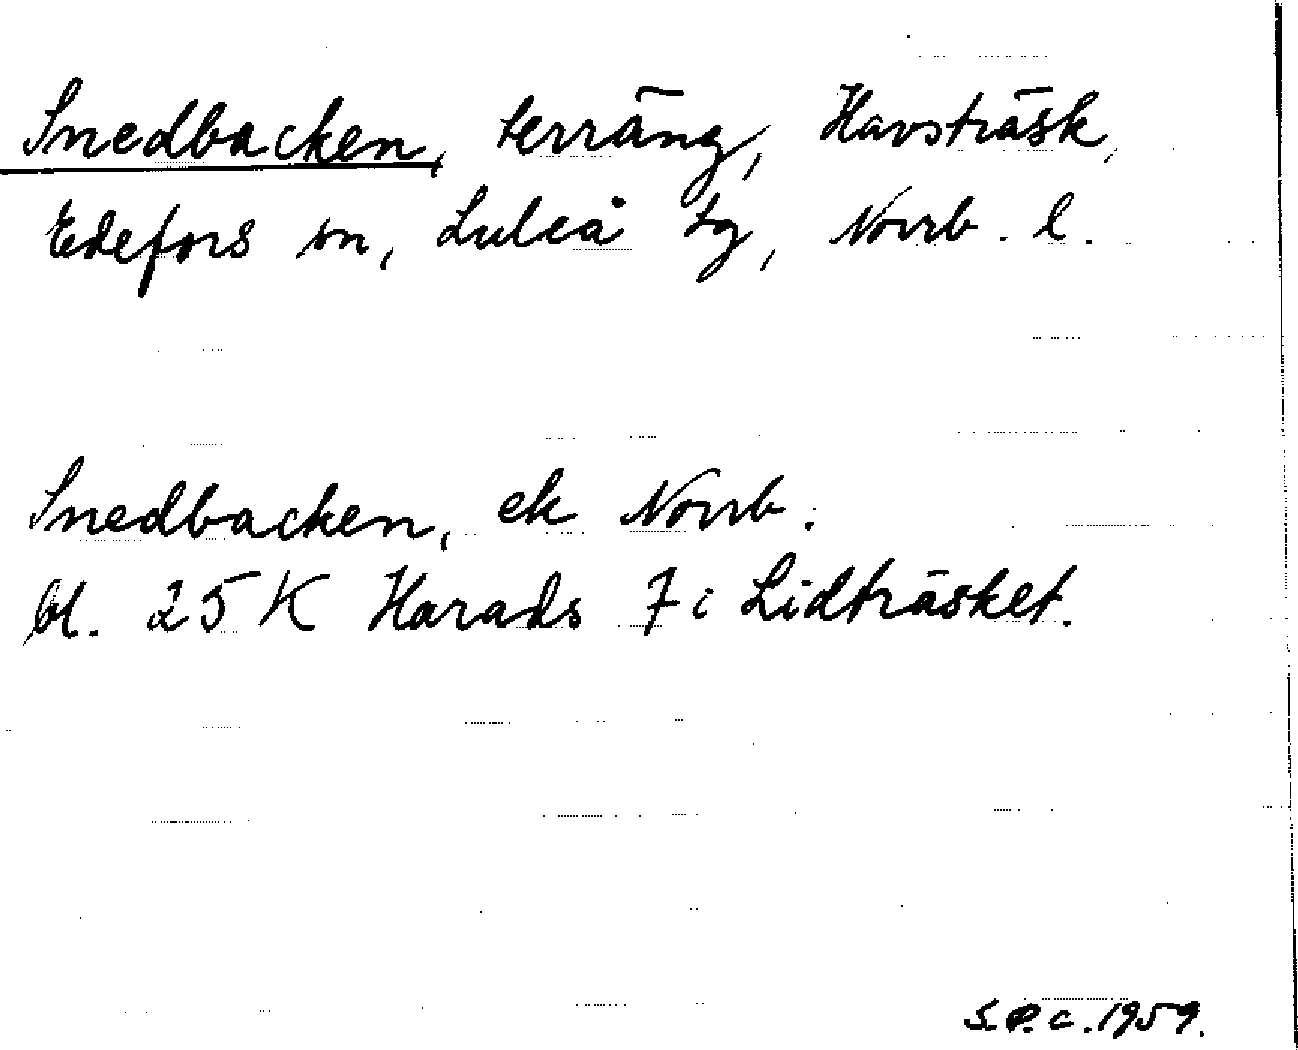 Snedbacken, terräng, Havsträsk,
Edefors sn, Luleå tg, Norrb. l.
Snedbacken, ek Norrb.
bl. 25 K Harads 7 i Lidträsket.
S.P.c. 1959.